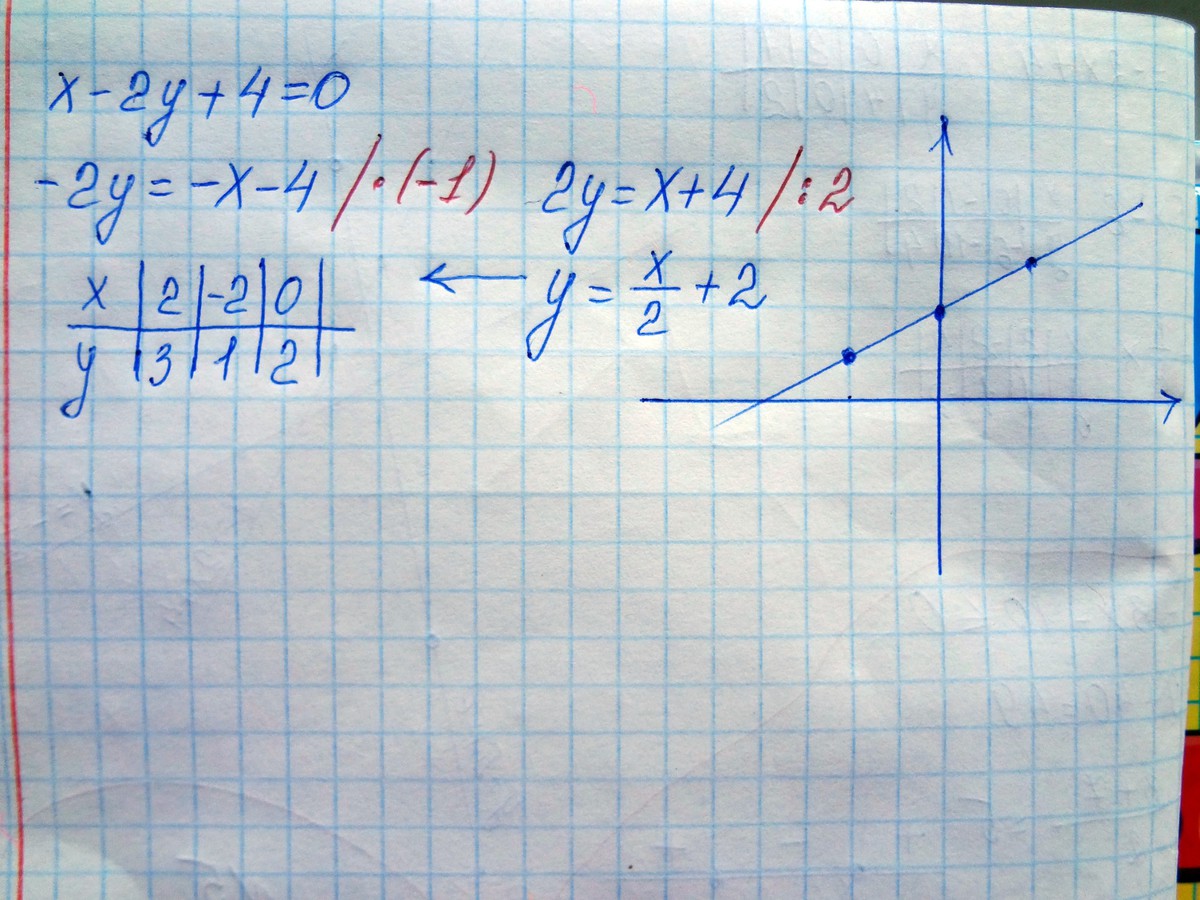 x-2y+4=0
-2y=-x-4 /·(-1) 2y=x+4 /:2
x | 2 | -2 | 0 | ← y = x/2 + 2
y | 3 | 1 | 2 |